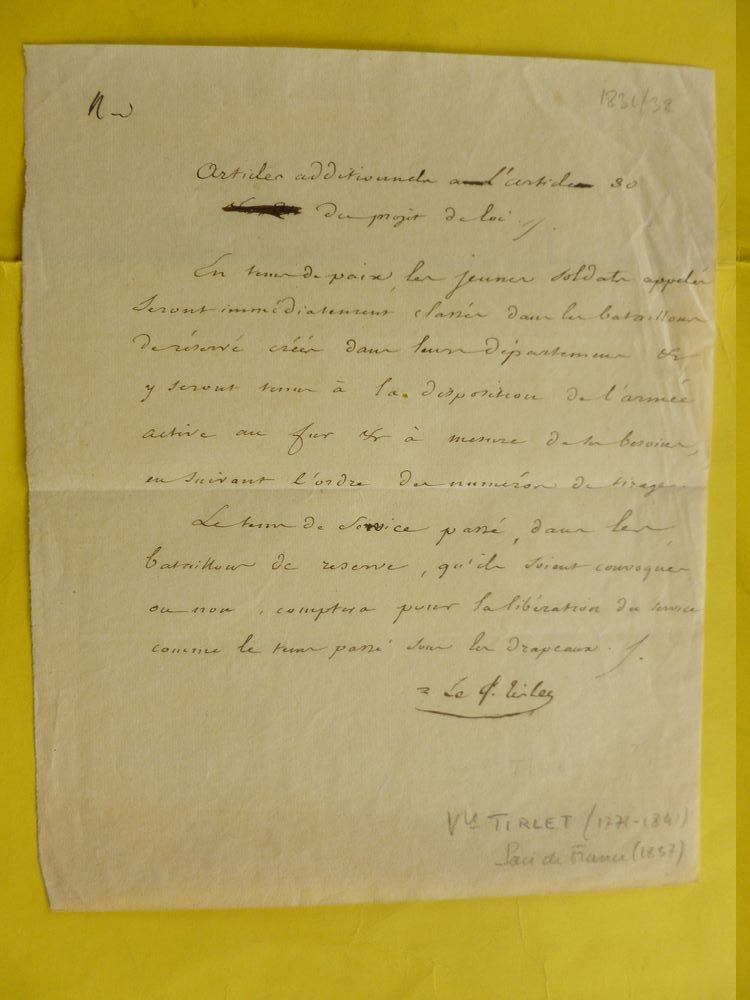 1831/32
Articles additionnels a l'article 30
du projet de loi ./.
En tems de paix, les jeunes soldats appelés
seront immédiatement classés dans les bataillons
de réserve créés dans leurs départemens &
y seront tenus à la disposition de l'armée
active au fur & à mesure de ses besoins,
en suivant l'ordre des numéros de tirage.
Le tems de service passé, dans les
bataillons de reserve, qu'ils soient convoqués
ou non, comptera pour la libération du service
comme le tems passé sous les drapeaux ./.
= Le Tirlet
Vte TIRLET (1771-1841)
Pair de France (1837)